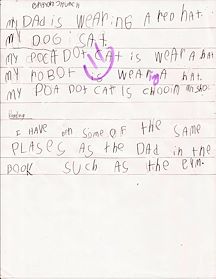 my DaD is WEARING A RED hat.
my DOG i CAt
my POCA DOt CAt is WEAR A hat
my ROBOT is WEARING A hat.
my POA DOt CAT IS
I HAVE on SOME OF the SAME
PLASES AS the DAD in the
BOOK SUCH AS the